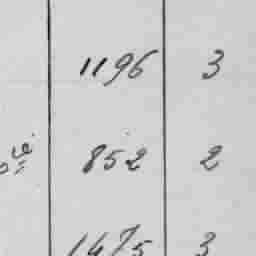 1196 3
852 2
1475 3